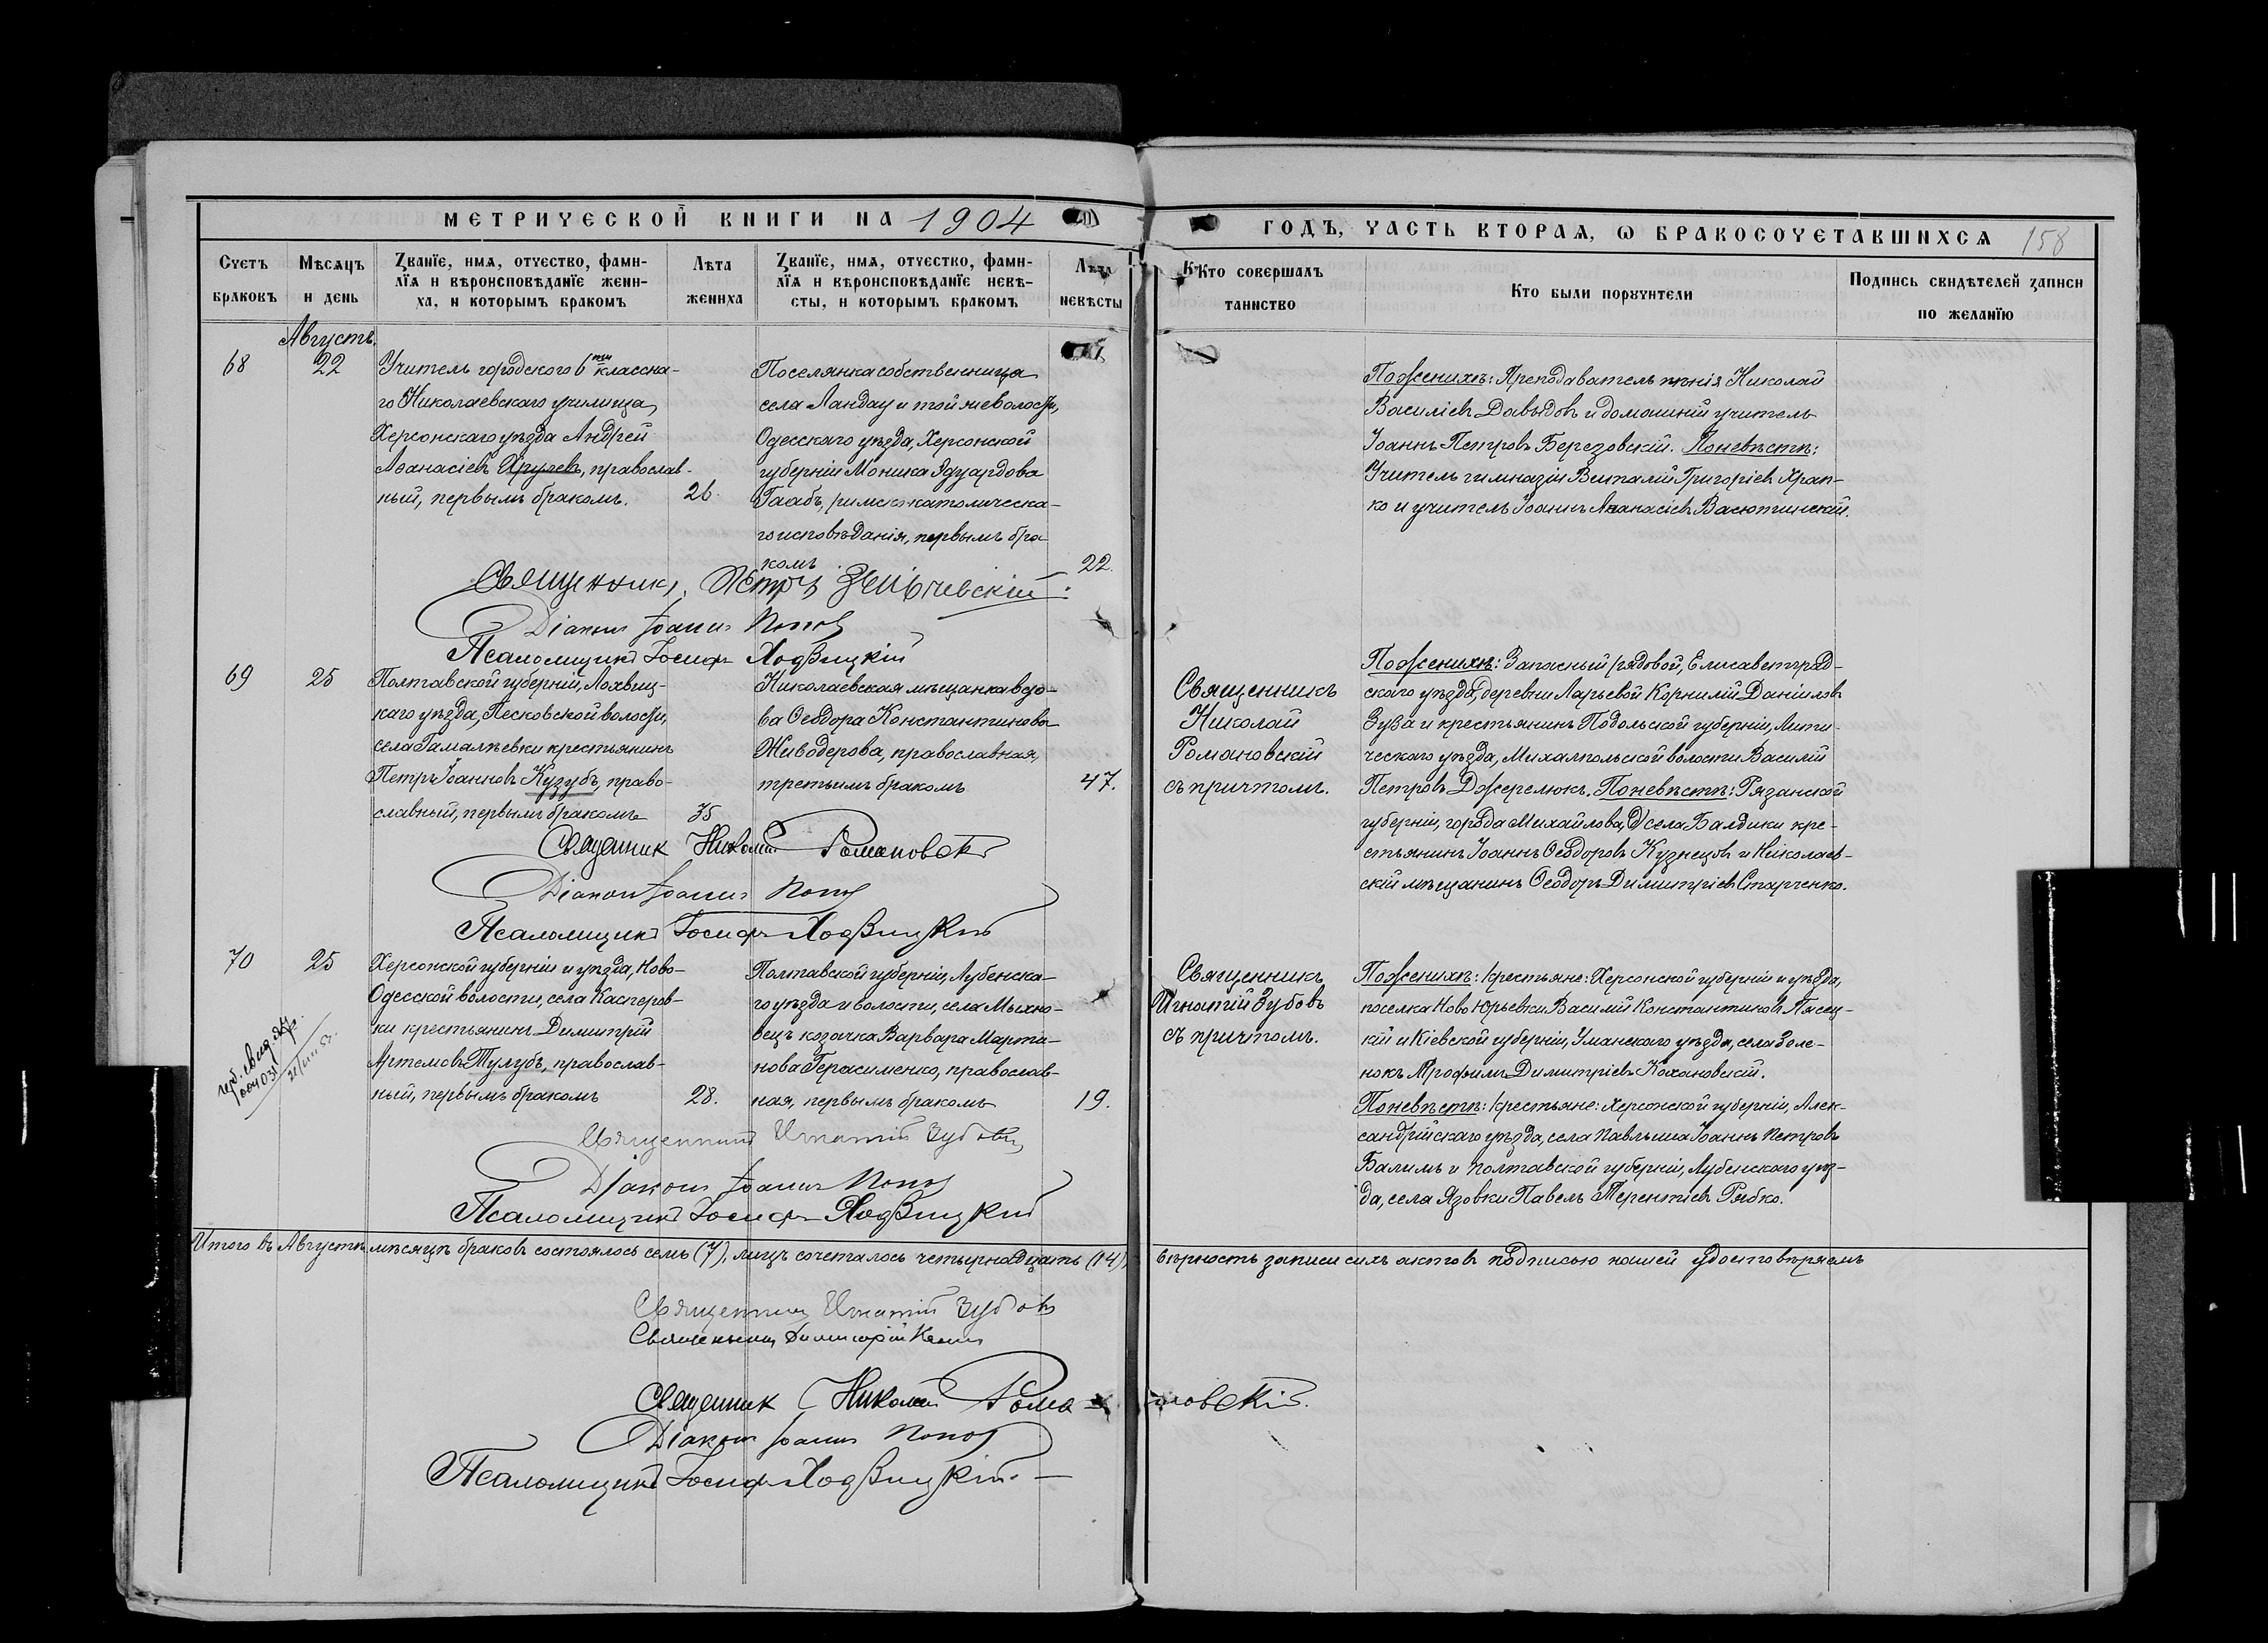 МЕТРИЧЕСКОЙ КНИГИ НА 1904
ГОДЪ, ЧАСТЬ ВТОРАЯ, Ѡ БРАКОСОЧЕТАВШИХСЯ 158
Счетъ браковъ
Мѣсяцъ и день
Званїе, имя, отчество, фами-
лїя и вѣроисповѣданїе жени-
ха, и которымъ бракомъ
Лѣта жениха
Званїе, имя, отчество, фами-
лїя и вѣроисповѣданїе невѣ-
сты, и которымъ бракомъ
Лѣта невѣсты
Кто совершалъ
таинство
Кто были поручители
Подпись свидѣтелей записи
по желанїю
Августъ.
68
22
Учитель городского 6ти классна-
го Николаевскаго училища,
Херсонскаго уѣзда Андрей
Аѳанасіевъ Хрулевъ, православ-
ный, первымъ бракомъ.
26.
Поселянка собственница
села Ландау и той же волости,
Одесскаго уѣзда, Херсонской
губерніи Моника Эдуардова
Гаабъ, римско католическа-
го исповѣданія, первымъ бра-
комъ
22.
Поженихѣ: Преподаватель пѣнія Николай
Василіевъ Давыдовъ и домашній учитель
Іоаннъ Петровъ Березовскій. Поневѣстѣ:
Учитель гимназіи Виталій Григоріевъ Храп-
ко и учитель Іоаннъ Аѳанасіевъ Васютинскій.
Священникъ Петръ
Діаконъ Іоаннъ Поповъ
Псаломщикъ Іосифъ Ходзицкій
69
25
Полтавской губерніи, Лохвиц-
каго уѣзда, Песковской волости,
села Гамалѣевки крестьянинъ
Петръ Іоанновъ Кузубъ, право-
славный, первымъ бракомъ
35
Николаевская мѣщанка вдо-
ва Ѳеодора Константинова
Живодерова, православная,
третьимъ бракомъ
47.
Священникъ
Николай
Романовскій
съ причтомъ.
Поженихѣ: Запасный рядовой, Елисаветград-
скаго уѣзда, деревни Ларьевой Корнилій Даніиловъ
Зуза и крестьянинъ Подольской губерніи, Лити-
ческаго уѣзда, Михалпольской волости Василій
Петровъ Джерелюкъ. Поневѣстѣ: Рязанской
губерніи, города Михайлова, села Балдики кре-
стьянинъ Іоаннъ Ѳеодоровъ Кузнецовъ и Николаев-
скій мѣщанинъ Ѳеодоръ Димитріевъ Старченко.
Священник Николай Романовскій
Діаконъ Іоаннъ Поповъ
Псаломщикъ Іосифъ Ходзицкій
70
25
Херсонской губерніи и уѣзда, Ново-
Одесской волости, села Касперов-
ки крестьянинъ Димитрій
Артемовъ Тулубъ, православ-
ный, первымъ бракомъ
28.
Полтавской губерніи, Лубенска-
го уѣзда и волости, села Мыхно-
вецъ козачка Варвара Марти-
нова Герасименко, православ-
ная, первымъ бракомъ
19.
Священникъ
Игнатій Зубовъ
съ причтомъ.
Поженихѣ: крестьяне: Херсонской губерніи и уѣзда,
поселка Ново Юрьевки Василій Константиновъ Пясец-
кій и Кіевской губерніи, Уманскаго уѣзда, села Золе-
нокъ Трофимъ Димитріевъ Кохановскій.
Поневѣстѣ: крестьяне: Херсонской губерніи, Алек-
сандрійскаго уѣзда, села Павлыша Іоаннъ Петровъ
Балимъ и Полтавской губерніи, Лубенскаго уѣз-
да, села Язовки Павелъ Терентіевъ Рябко.
Священникъ Игнатій Зубовъ
Діаконъ Іоаннъ Поповъ
Псаломщикъ Іосифъ Ходзицкій
Итого въ Августѣ мѣсяцѣ браковъ состоялось семь (7), лицъ сочеталось четырнадцать (14), вѣрность записи сихъ актовъ подписью нашей удостовѣряемъ
Священникъ Игнатій Зубовъ
Священникъ Димитрій
Священник Николай Романовскій.
Діаконъ Іоаннъ Поповъ
Псаломщикъ Іосифъ Ходзицкій